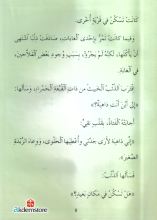 كَانَتْ تَسْكُنُ فِي قَرْيَةٍ أُخْرَى.
وَفِيمَا كَانَتْ تَمُرُّ بِإِحْدَى الْغَابَاتِ، صَادَفَتْ ذِئْبًا اشْتَهَى
أَنْ يَأْكُلَهَا، لَكِنَّهُ لَمْ يَجْرُؤْ، بِسَبَبِ وُجُودِ بَعْضِ الْفَلَّاحِينَ،
فِي الْغَابَةِ.
اقْتَرَبَ الذِّئْبُ الْخَبِيثُ مِنْ ذَاتِ الْقُبَّعَةِ الْحَمْرَاءِ، وَسَأَلَهَا:
«إِلَى أَيْنَ أَنْتِ ذَاهِبَةٌ؟»
أَجَابَتْهُ الْفَتَاةُ، بِقَلْبٍ نَقِيٍّ:
«إِنِّي ذَاهِبَةٌ لِأَرَى جَدَّتِي وَأُعْطِيَهَا الْحَلْوَى، وَوِعَاءَ الزُّبْدَةِ
الصَّغِيرَ».
فَسَأَلَهَا الذِّئْبُ:
«هَلْ تَسْكُنُ فِي مَكَانٍ بَعِيدٍ؟»